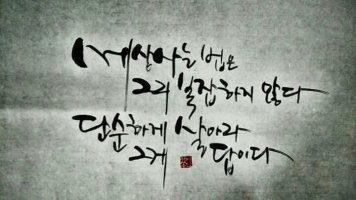 세상 사는 법은
그리 복잡하지 않다
단순하게 살아라
그게 답이다